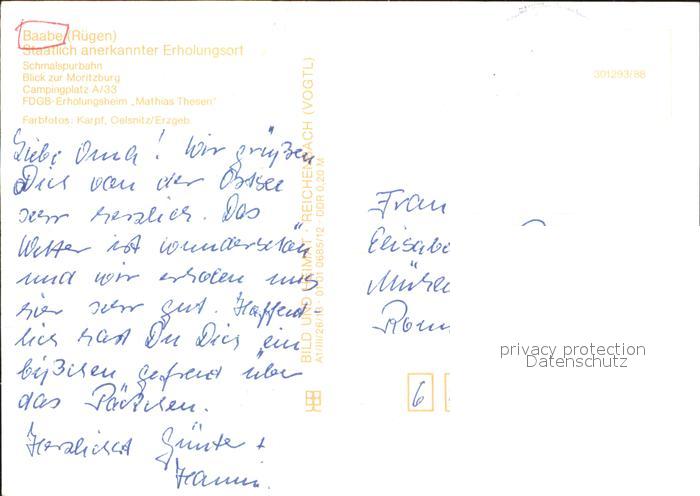 Baabe (Rügen)
Staatlich anerkannter Erholungsort
Schmalspurbahn
Blick zur Moritzburg
Campingplatz A/33
FDGB-Erholungsheim „Mathias Thesen"
Farbfotos: Karpf, Oelsnitz/Erzgeb.
Liebe Oma! Wir grüßen
Dich von der Ostsee
sehr herzlich. Das
Wetter ist wunderschön
und wir erholen uns
hier sehr gut. Hoffent-
lich hast Du Dich ein
bißchen gefreut über
das Päckchen.
Herzlichst Günter +
Hanni.
BILD UND HEIMAT REICHENBACH (VOGTL)
A1/III/26/13 01 01 0685/12 DDR 0,20 M
301293/88
Frau
Elisabe
6
privacy protection
Datenschutz